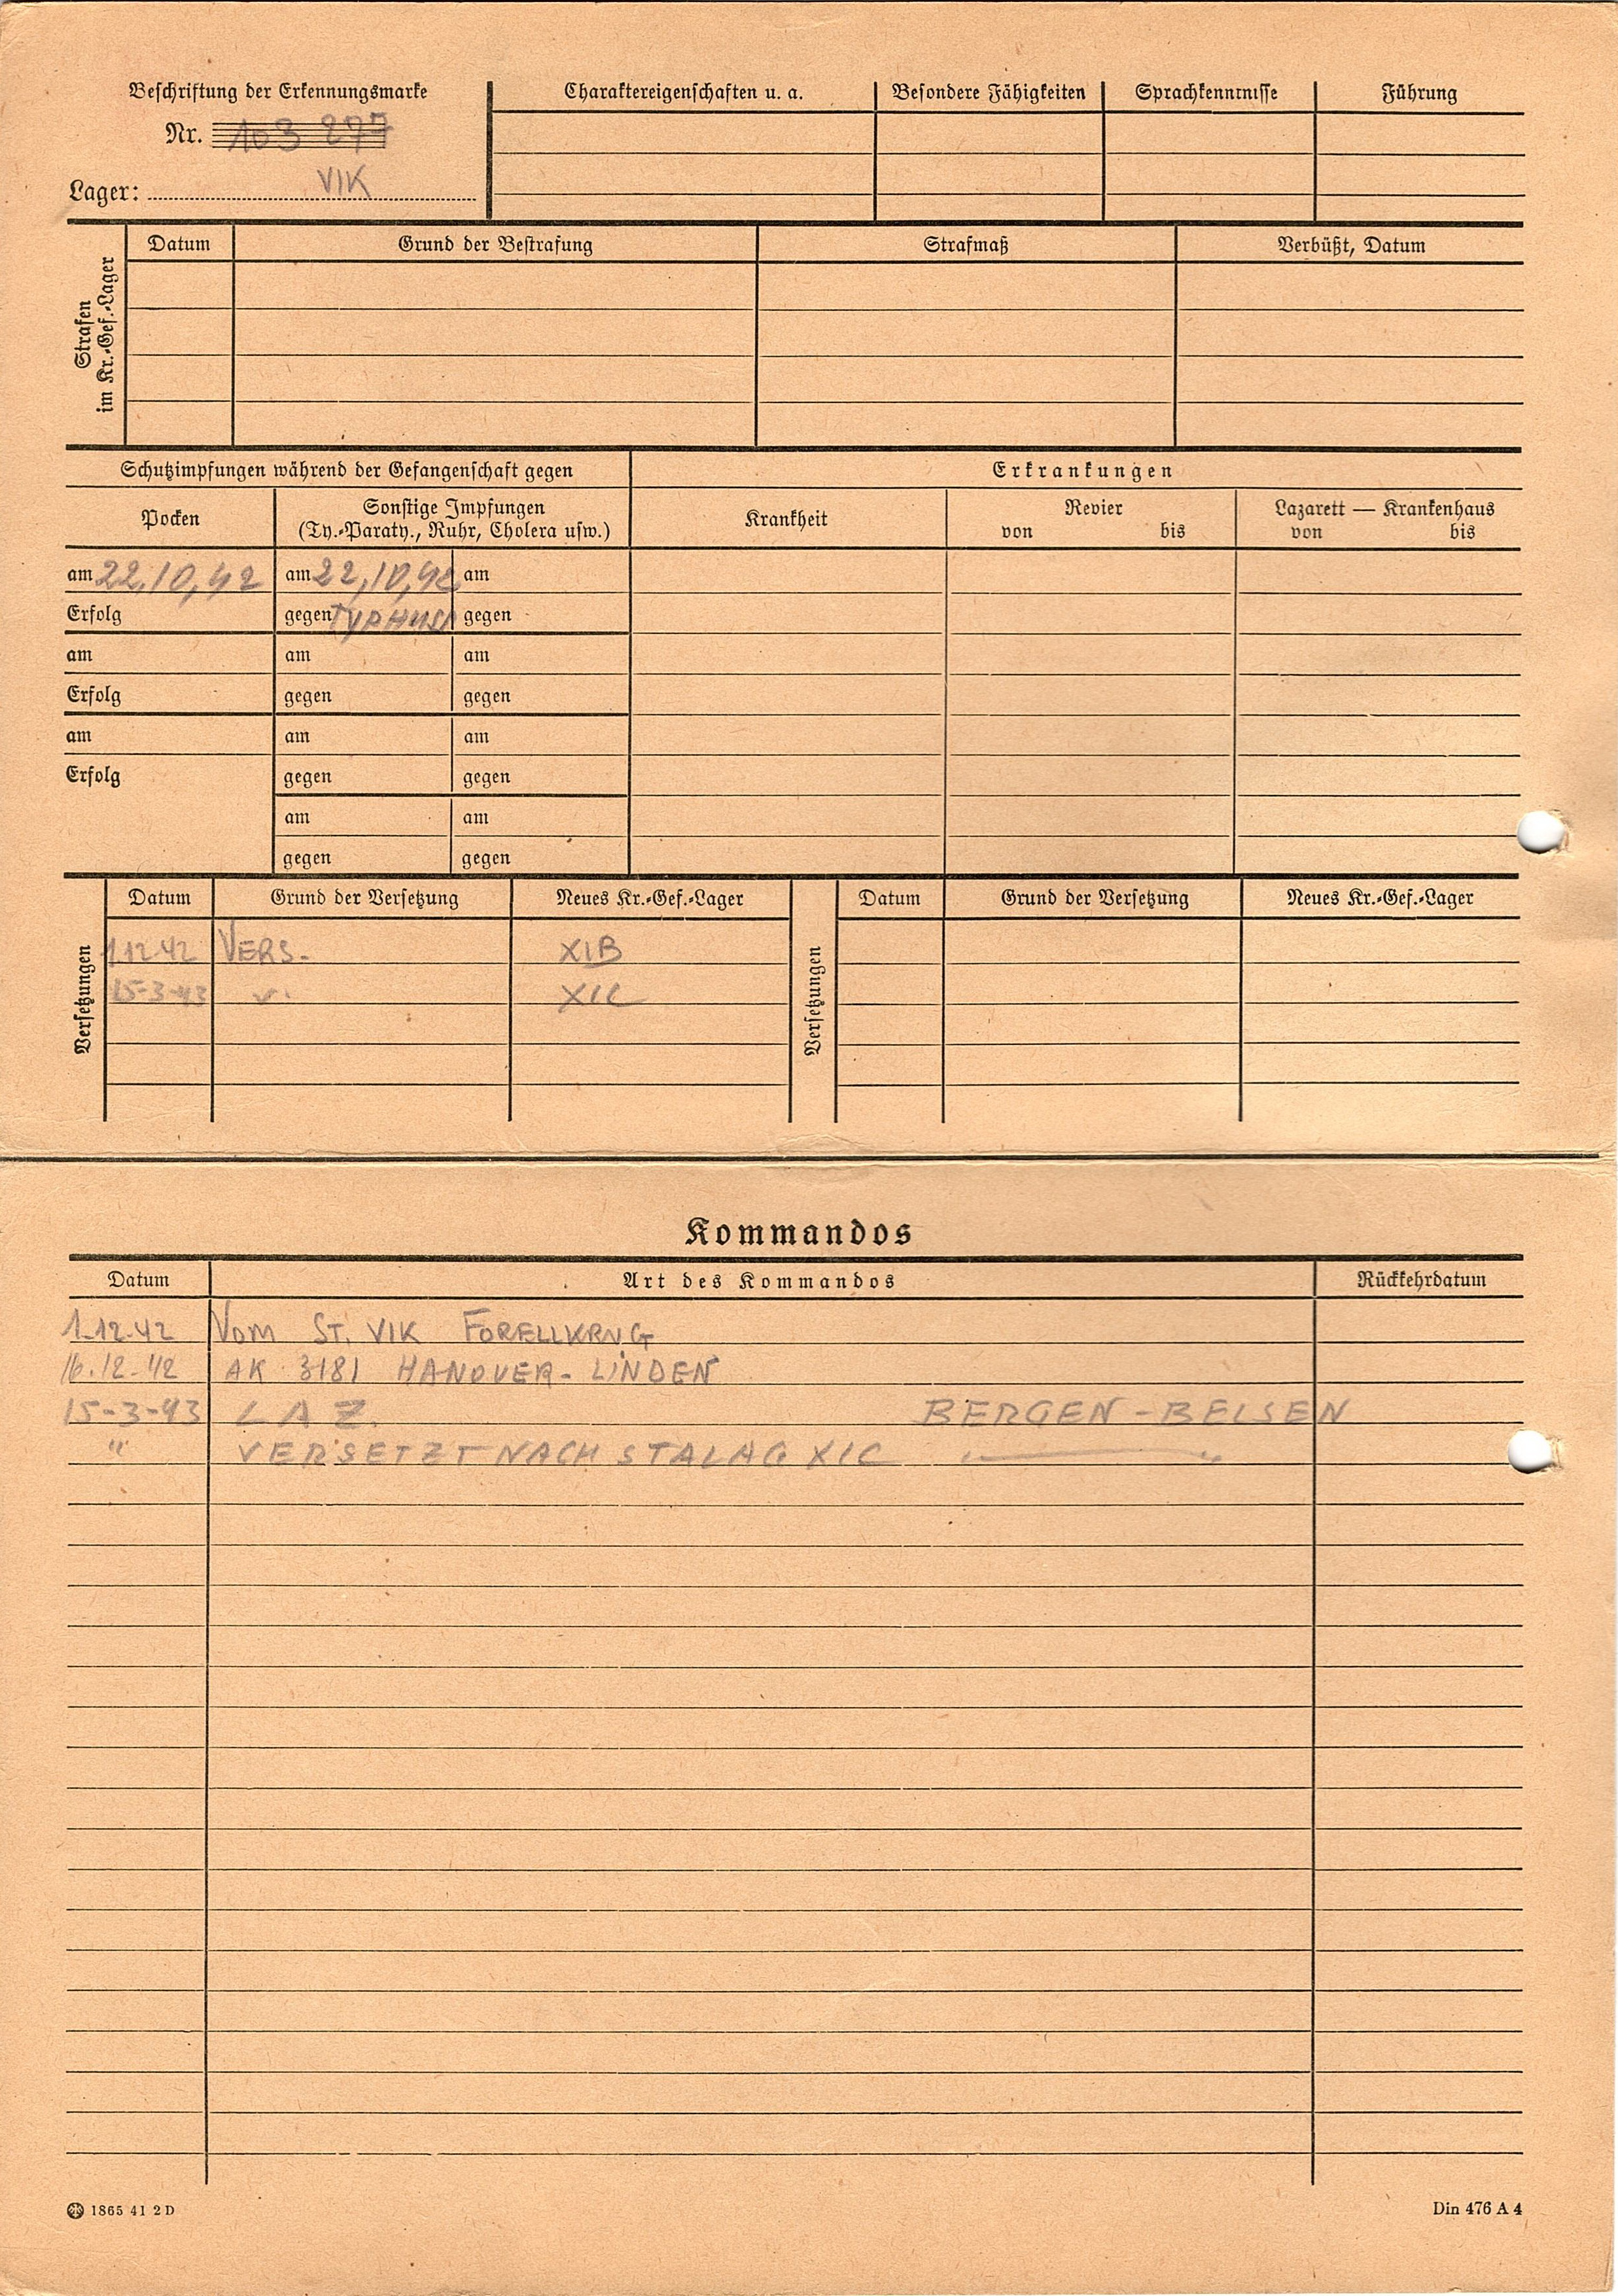 Beschriftung der Erkennungsmarke
Nr. 103 277
Lager: VIK
Charaktereigenschaften u. a. Besondere Fähigkeiten Sprachkenntnisse Führung
Strafen
im Kr.-Gef.-Lager
Datum Grund der Bestrafung Strafmaß Verbüßt, Datum
Schutzimpfungen während der Gefangenschaft gegen Erkrankungen
Pocken
Sonstige Impfungen
(Ty.-Paraty., Ruhr, Cholera usw.)
Krankheit
Revier
von bis
Lazarett — Krankenhaus
von bis
am 22,10,42 am 22,10,42 am
Erfolg gegen gegen
am am am
Erfolg gegen gegen
am am am
Erfolg gegen gegen
am am
gegen gegen
Versetzungen
Datum Grund der Versetzung Neues Kr.-Gef.-Lager
1.12.42 VERS. XIB
15-3-43 v. XIC
Versetzungen
Datum Grund der Versetzung Neues Kr.-Gef.-Lager
Kommandos
Datum Art des Kommandos Rückkehrdatum
1.12.42 VOM ST. VIK FORELLKRUG
16.12.42 AK 3181 HANOVER-LINDEN
15-3-43 LAZ. BERGEN-BELSEN
" VERSETZT NACH STALAG XIC — "
1865 41 2 D
Din 476 A 4